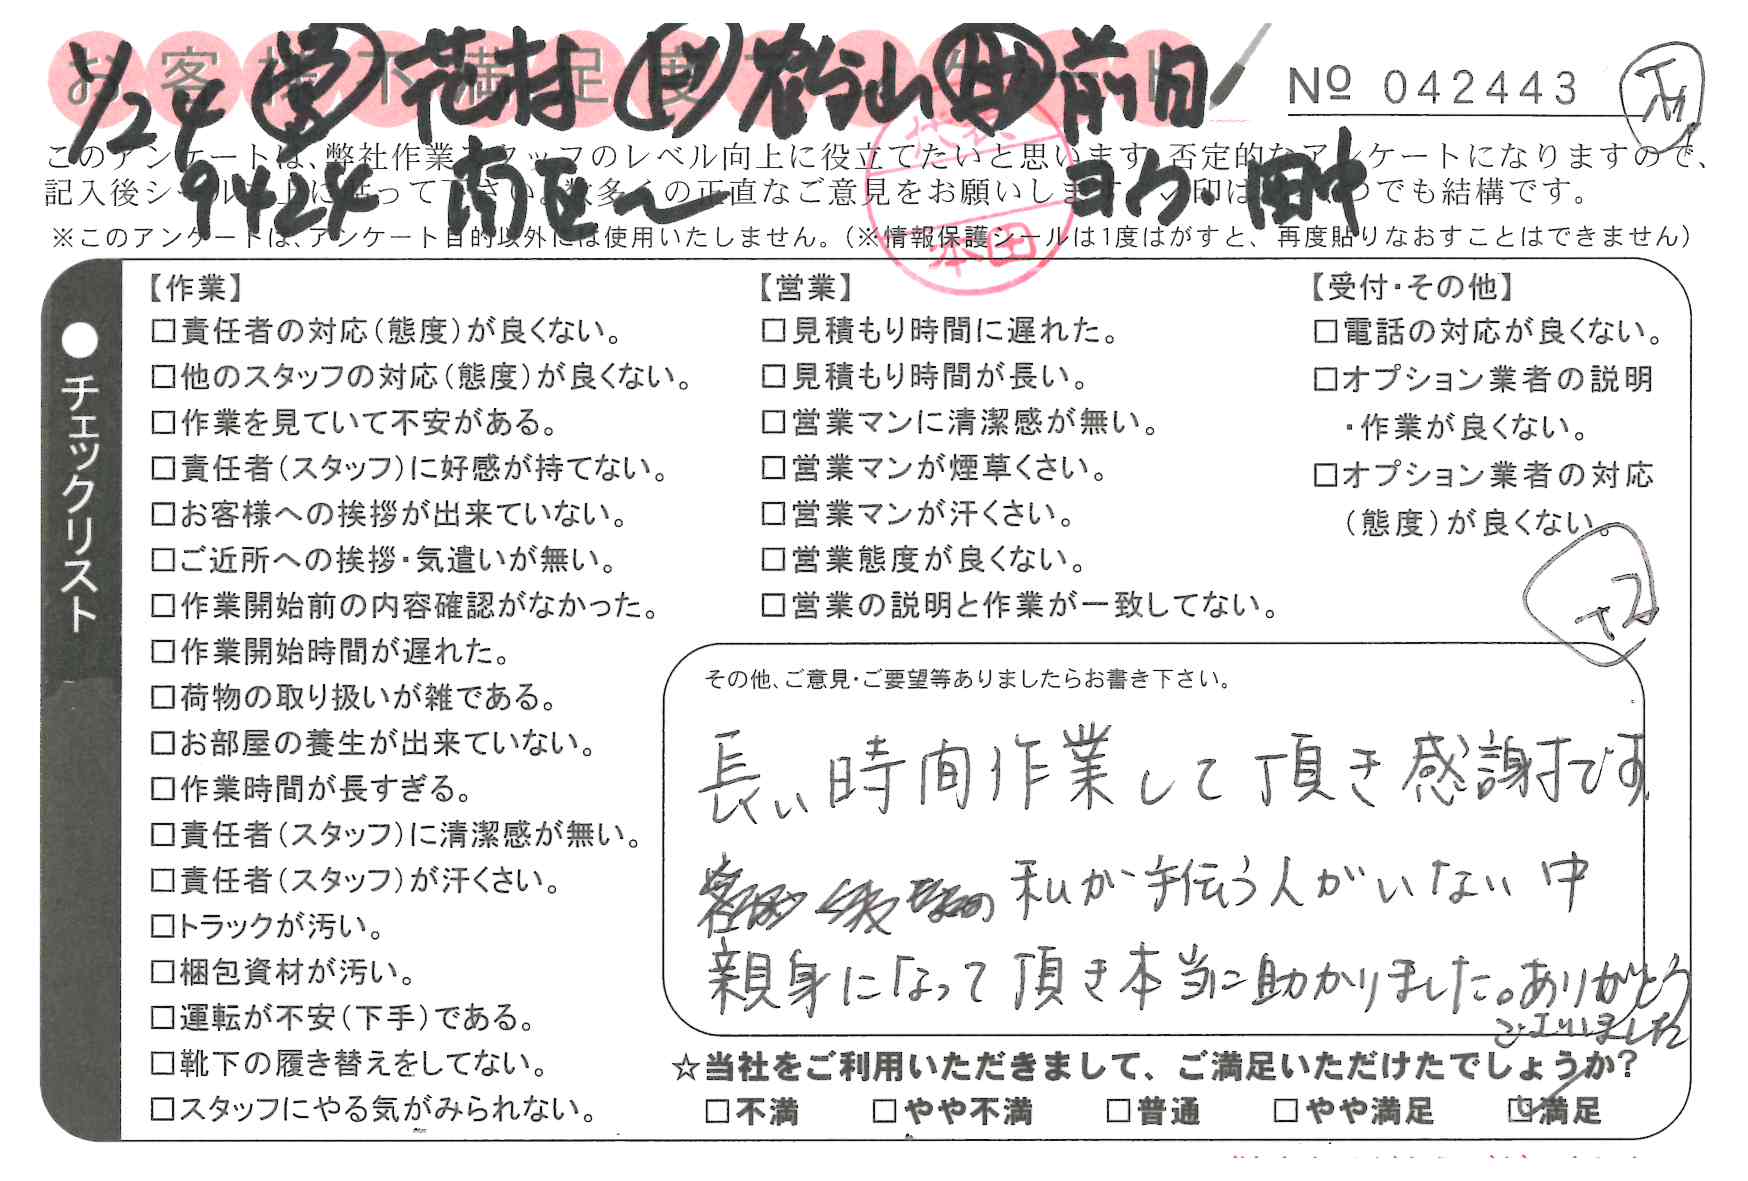 お客様不満足度アンケート
1/24 営 花村 現 谷山 助 前田
№ 042443
このアンケートは、弊社作業スタッフのレベル向上に役立てたいと思います。否定的なアンケートになりますので、
記入後シールを上に貼って下さい。数多くの正直なご意見をお願いします。✓印はいくつでも結構です。
9424 南区〜 ヨウ・田中
※このアンケートは、アンケート目的以外には使用いたしません。(※情報保護シールは1度はがすと、再度貼りなおすことはできません)
代表
本田
●チェックリスト
【作業】
□責任者の対応(態度)が良くない。
□他のスタッフの対応(態度)が良くない。
□作業を見ていて不安がある。
□責任者(スタッフ)に好感が持てない。
□お客様への挨拶が出来ていない。
□ご近所への挨拶・気遣いが無い。
□作業開始前の内容確認がなかった。
□作業開始時間が遅れた。
□荷物の取り扱いが雑である。
□お部屋の養生が出来ていない。
□作業時間が長すぎる。
□責任者(スタッフ)に清潔感が無い。
□責任者(スタッフ)が汗くさい。
□トラックが汚い。
□梱包資材が汚い。
□運転が不安(下手)である。
□靴下の履き替えをしてない。
□スタッフにやる気がみられない。
【営業】
□見積もり時間に遅れた。
□見積もり時間が長い。
□営業マンに清潔感が無い。
□営業マンが煙草くさい。
□営業マンが汗くさい。
□営業態度が良くない。
□営業の説明と作業が一致してない。
【受付・その他】
□電話の対応が良くない。
□オプション業者の説明
・作業が良くない。
□オプション業者の対応
(態度)が良くない。
その他、ご意見・ご要望等ありましたらお書き下さい。
長い時間作業して頂き感謝です
私が手伝う人がいない中
親身になって頂き本当に助かりました。ありがとう
ございました
☆当社をご利用いただきまして、ご満足いただけたでしょうか?
□不満 □やや不満 □普通 □やや満足 ☑満足